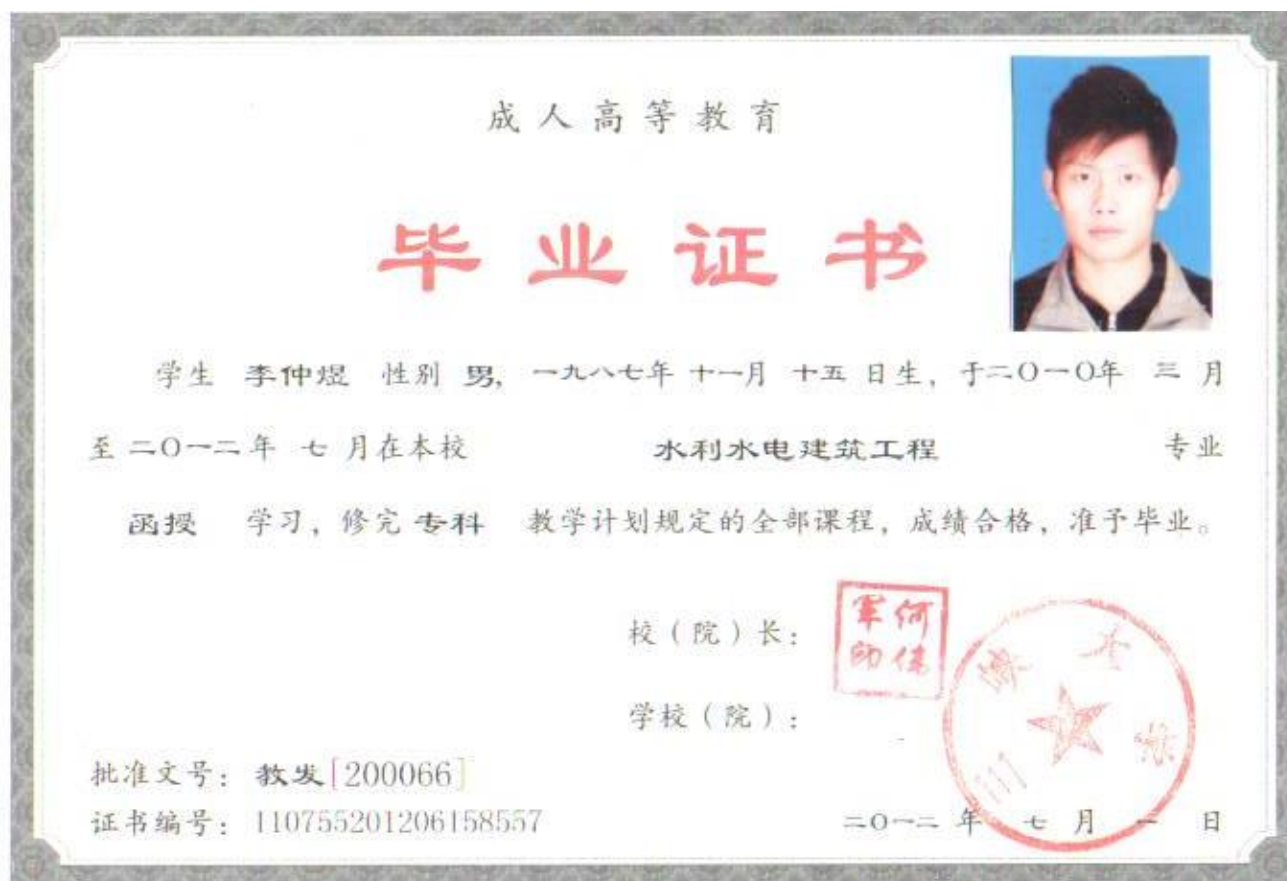 成人高等教育
毕业证书
学生 李仲煜 性别 男, 一九八七年 十一月 十五 日生, 于二〇一〇年 三 月
至 二〇一二年 七 月在本校 水利水电建筑工程 专业
函授 学习, 修完 专科 教学计划规定的全部课程, 成绩合格, 准予毕业。
校（院）长：
何伟军印
学校（院）：
三峡大学
批准文号：教发[200066]
证书编号：110755201206158557
二〇一二 年 七 月 一 日